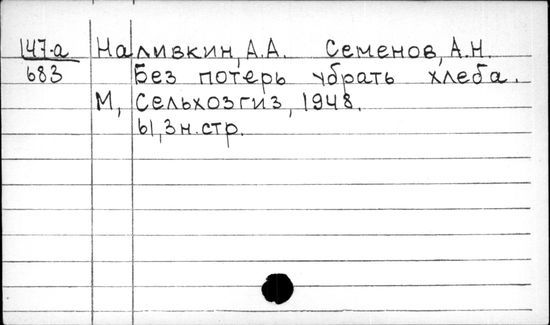 147-а Наливкин, А.А. Семенов, А.Н.
683 Без потерь убрать хлеба.
М, Сельхозгиз, 1948.
61, 3 н. стр.